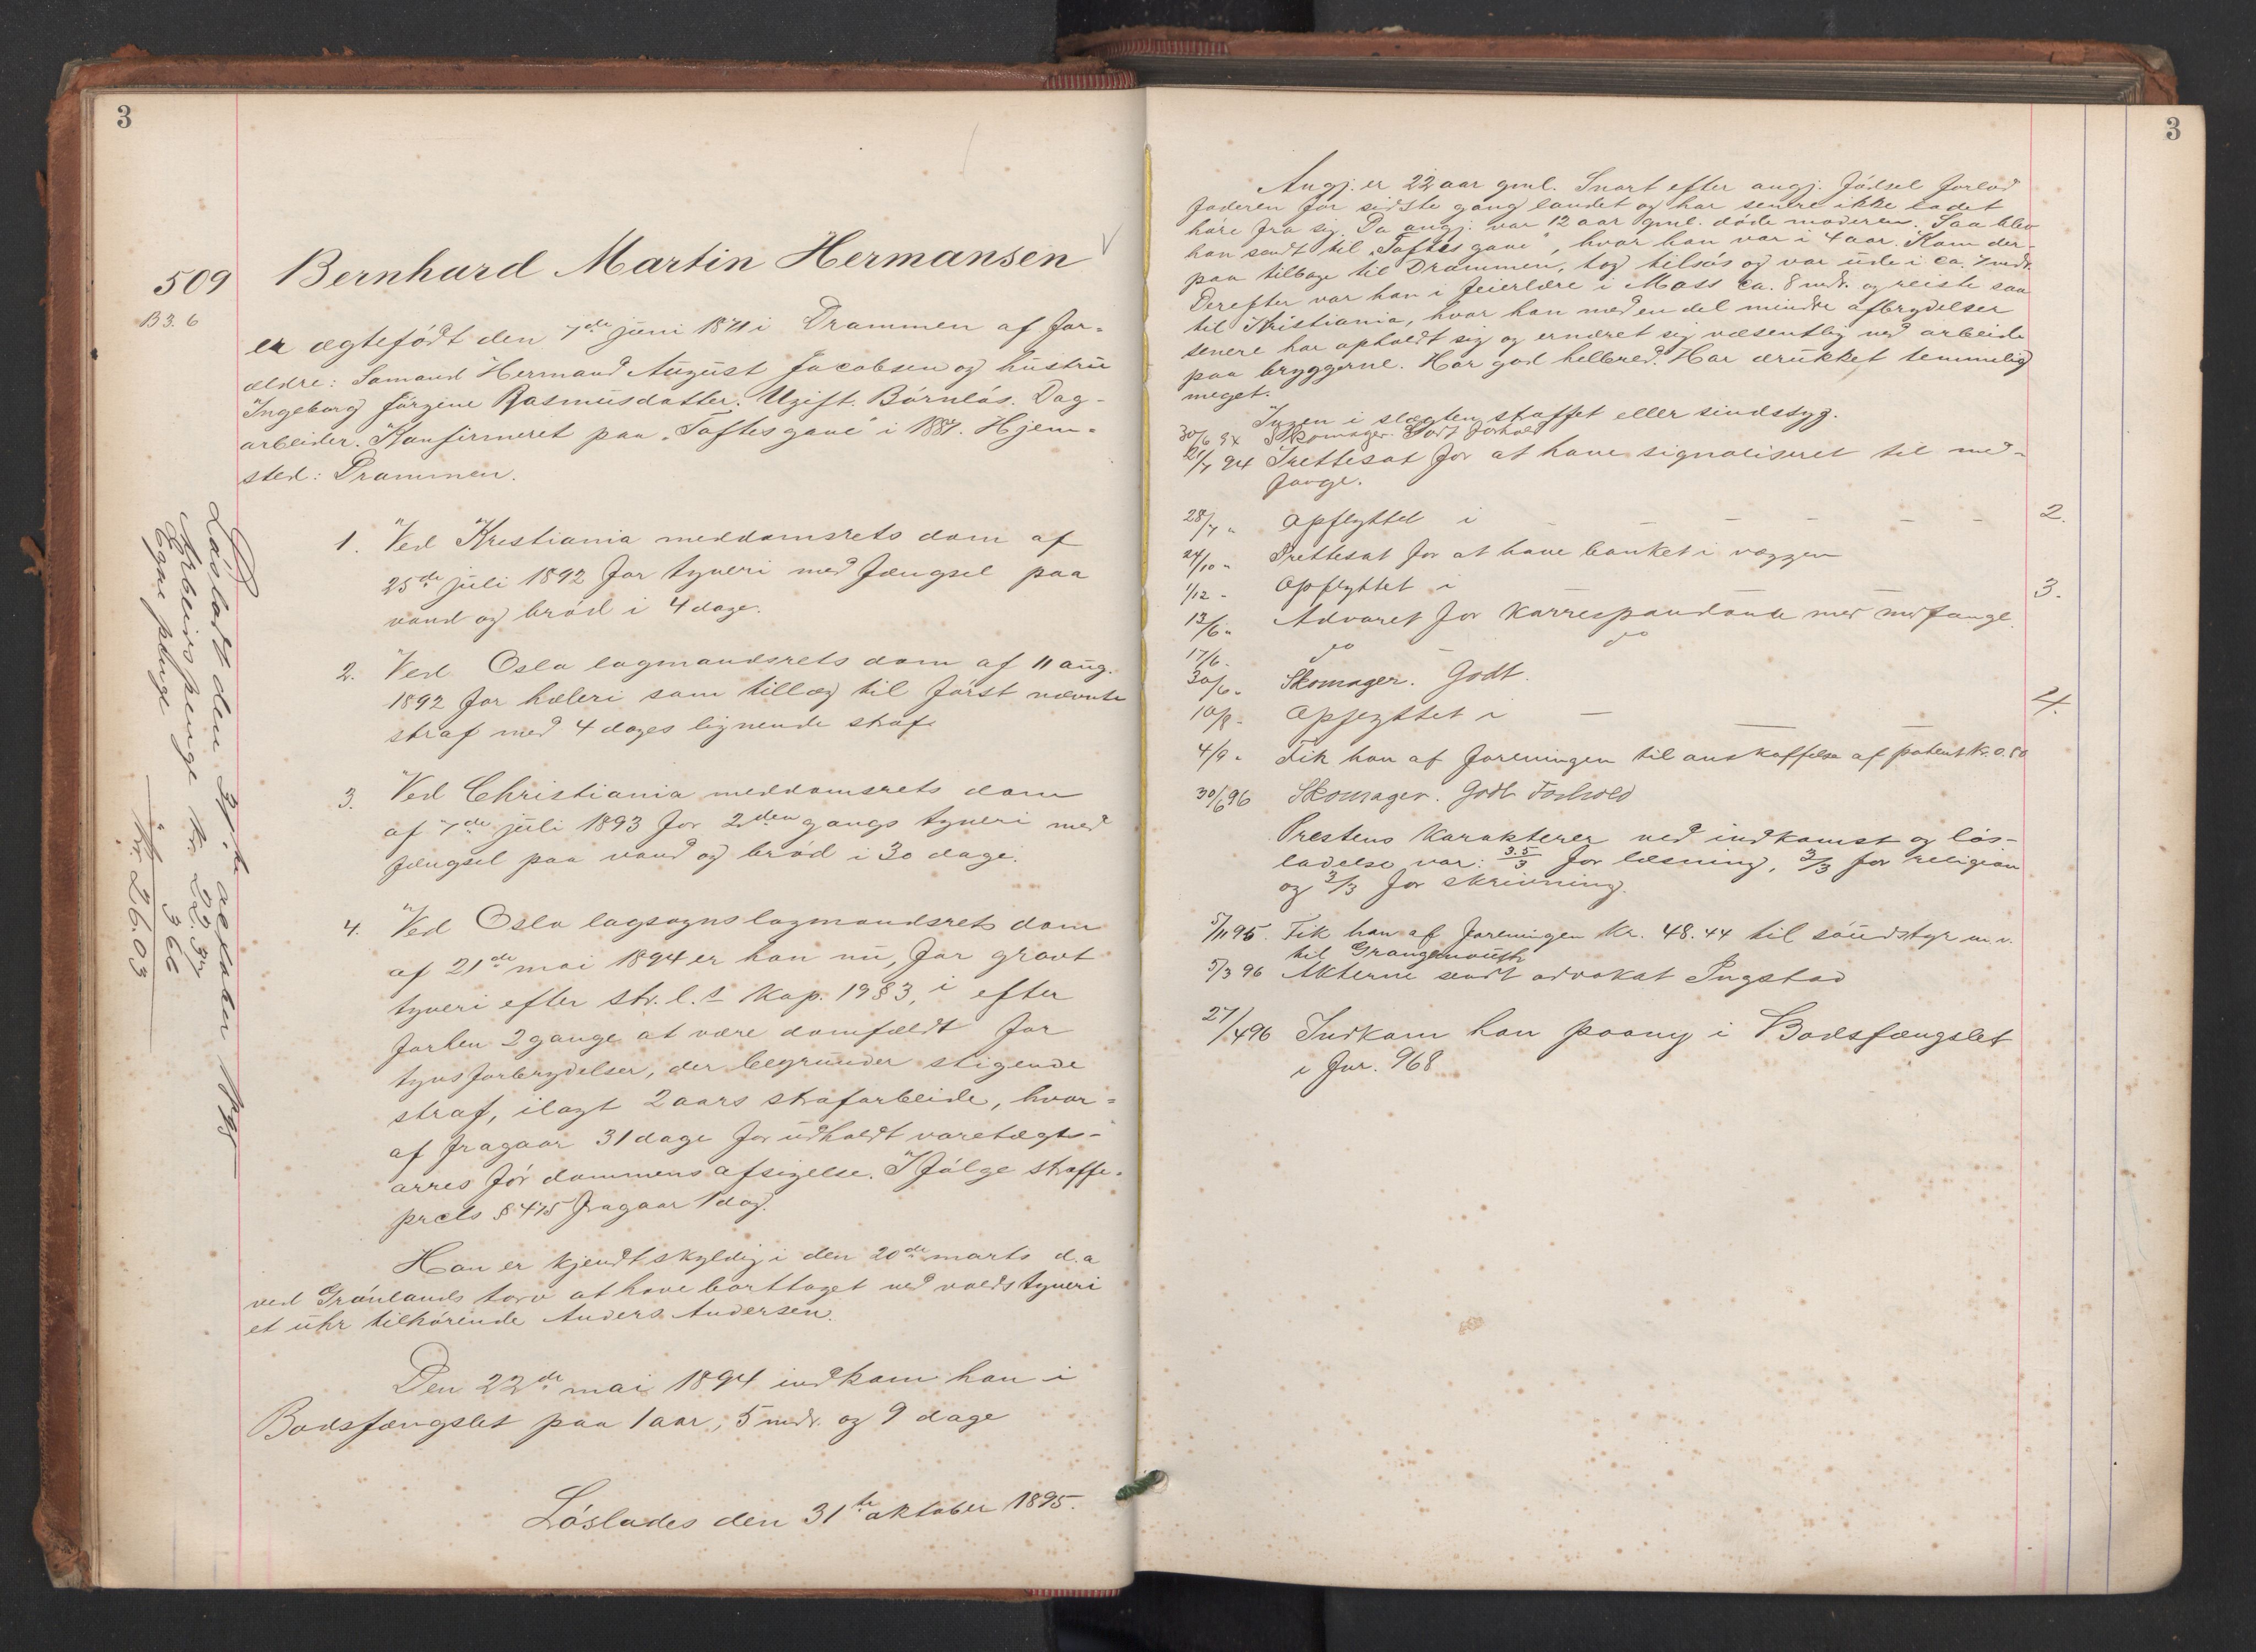 3
509
B 3. 6
Bernhard Martin Hermansen
er ægtefödt den 7de juni 1871 i Drammen af for-
ældre: Sömand Hermand August Jacobsen og hustru
Ingeborg Jörgine Rasmusdatter. Ugift. Börnlös. Dag-
arbeider. Konfirmeret paa "Toftes gave" i 1887. Hjem-
sted: Drammen.
1. Ved Kristiania meddomsrets dom af
25de juli 1892 for tyveri med fængsel paa
vand og bröd i 4 dage.
2. Ved Oslo lagmandsrets dom af 11 aug.
1892 for hæleri som tillæg til först nævnte
straf med 4 dages lignende straf.
3. Ved Christiania meddomsrets dom
af 7de juli 1893 for 2den gangs tyveri med
fængsel paa vand og bröd i 30 dage.
4. Ved Oslo lagsogns lagmandsrets dom
af 21de mai 1894 er han nu, for grovt
tyveri efter str. l.s kap. 19 § 3, i efter
forhen 2 gange at være domfældt for
tyvsforbrydelser, der begrunder stigende
straf, ilagt 2 aars strafarbeide, hvor-
af fragaar 31 dage for udholdt varetægts-
arres för dommens afsigelse. Ifölge straffe-
prcls § 475 fragaar 1 dag.
Han er kjendt skyldig i den 20de marts d.a
ved Grönlands torv at have borttaget ved voldstyveri
et uhr tilhörende Anders Andersen.
Den 22de mai 1894 indkom han i
Bodsfængslet paa 1 aar, 5 mdr. og 9 dage
Löslades den 31te oktober 1895.
Lösladt den 31te oktober 1895
Arbeidspenge kr. 22.37
Egne penge " 3 66
kr. 26.03
3
Angj. er 22 aar gml. Snart efter angj. födsel forlod
faderen for sidste gang landet og har senere ikke ladet
höre fra sig. Da angj. var 12 aar gml. döde moderen. Saa blev
han sendt til "Toftes gave", hvor han var i 4 aar. Kom der-
paa tilbage til Drammen, tog tilsös og var ude i ca. 7 mdr.
Derefter var han i feierlære i Moss ca. 8 mdr. og reiste saa
til Kristiania, hvor han med en del mindre afbrydelser
senere har opholdt sig og ernæret sig væsentlig ved arbeide
paa bryggerne. Har god helbred. Har drukket temmelig
meget.
Ingen i slægten straffet eller sindssyg.
30/6 94 Skomager. Godt forhold
21/7 94 Irettesat for at have signaliseret til med-
fange.
28/7 " Opflyttet i — — — — — — 2.
24/10 " Irettesat for at have banket i væggen
1/12 - Opflyttet i — — — 3.
13/6 " Advaret for korrespondance med medfange.
17/6 - do — do
30/6 " Skomager. Godt.
10/8 - Opflyttet i — — — 4.
4/9 " Fik han af foreningen til anskaffelse af patent kr. 0.80
30/6 96 Skomager. Godt Forhold
Prestens karakterer ved indkomst og lös-
ladelse var: 3.5/3 for læsning, 3/3 for religion
og 3/3 for skrivning.
5/11 95. Fik han af foreningen kr. 48.44 til söudstyr m.v.
til Grangemouth
5/3 96 Akterne sendt advokat Ingstad
27/4 96 Indkom han paany i Bodsfængslet
i Jnr. 968